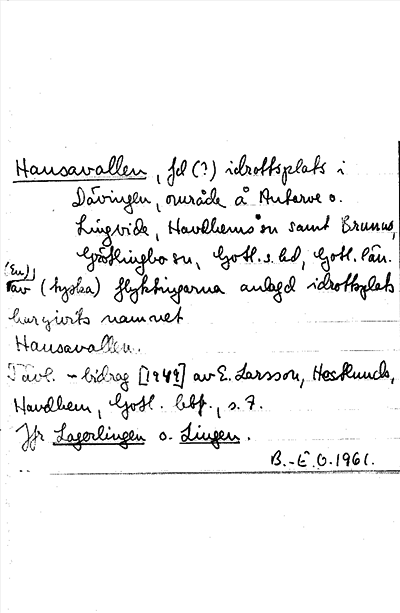 Hansavallen, fd (?) idrottsplats i
Dävingen, område å Anterve o.
Lingvide, Havdhems sn samt Brunns,
Grötlingbo sn, Gotl. s. hd, Gotl. län.
(En),
av (tyska) flyktingarna anlagd idrottsplats
har givits namnet
Hansavallen.
Tävl. - bidrag [1949] av E. Larsson, Hesslunds,
Havdhem, Gotl. , s. 7.
Jfr Lagerlingen o. Lingen.
B.-E. O. 1961.